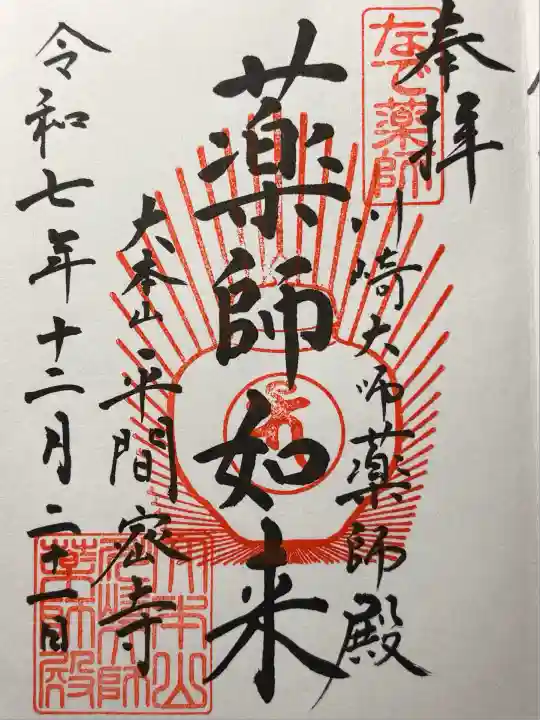 奉拝
なで薬師
川崎大师薬師殿
薬師如来
大本山 平間寺
令和七年十二月二十一日
大本山
川崎大師
薬師殿